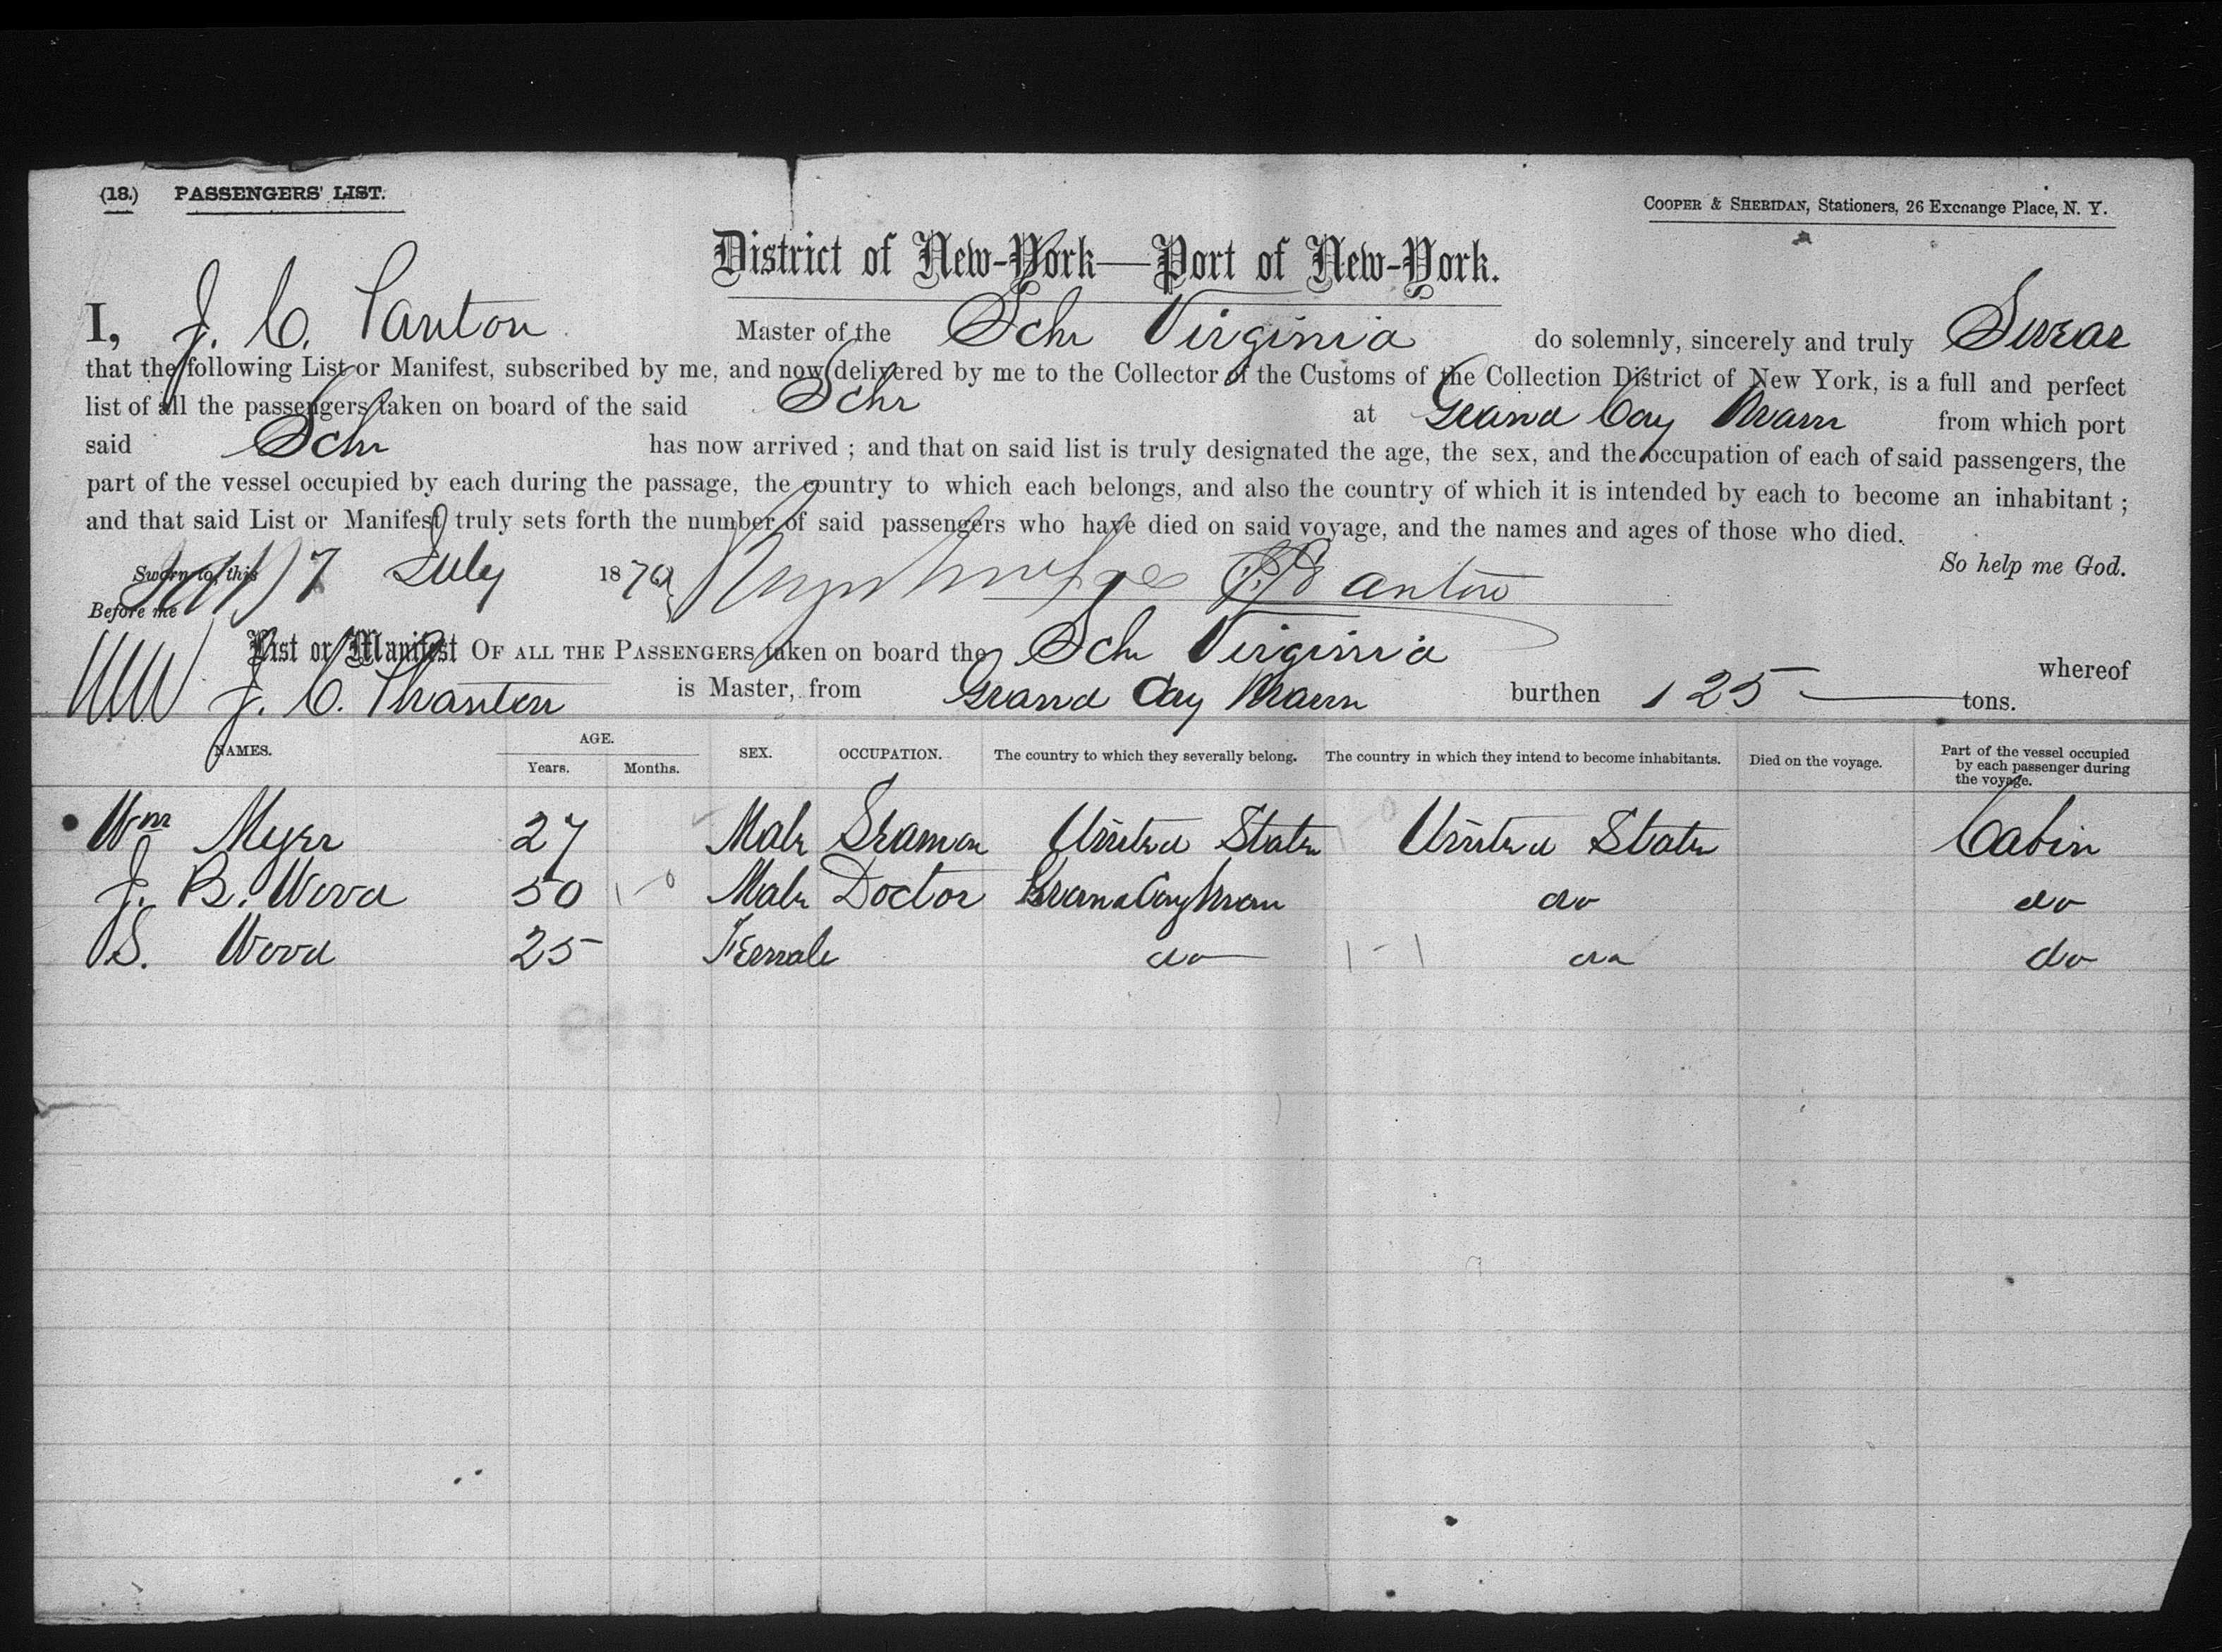 (18.) PASSENGERS' LIST.
COOPER & SHERIDAN, Stationers, 26 Exchange Place, N. Y.
District of New-York—Port of New-York.
I, J. C. Panton Master of the Schr Virginia do solemnly, sincerely and truly Swear
that the following List or Manifest, subscribed by me, and now delivered by me to the Collector of the Customs of the Collection District of New York, is a full and perfect
list of all the passengers taken on board of the said Schr at Grand Cay Man from which port
said Schr has now arrived ; and that on said list is truly designated the age, the sex, and the occupation of each of said passengers, the
part of the vessel occupied by each during the passage, the country to which each belongs, and also the country of which it is intended by each to become an inhabitant ;
and that said List or Manifest truly sets forth the number of said passengers who have died on said voyage, and the names and ages of those who died.
So help me God.
Sworn to, this 17 July 1879 Panton
Before me
List or Manifest OF ALL THE PASSENGERS taken on board the Schr Virginia whereof
J. C. is Master, from Grand Cay Man burthen 125 tons.
NAMES. AGE. Years. Months. SEX. OCCUPATION. The country to which they severally belong. The country in which they intend to become inhabitants. Died on the voyage. Part of the vessel occupied by each passenger during the voyage.
Wm Myer 27 Male Seaman United States United States Cabin
J. B. Wood 50 Male Doctor Grand Cay Man do do
S. Wood 25 Female do do do